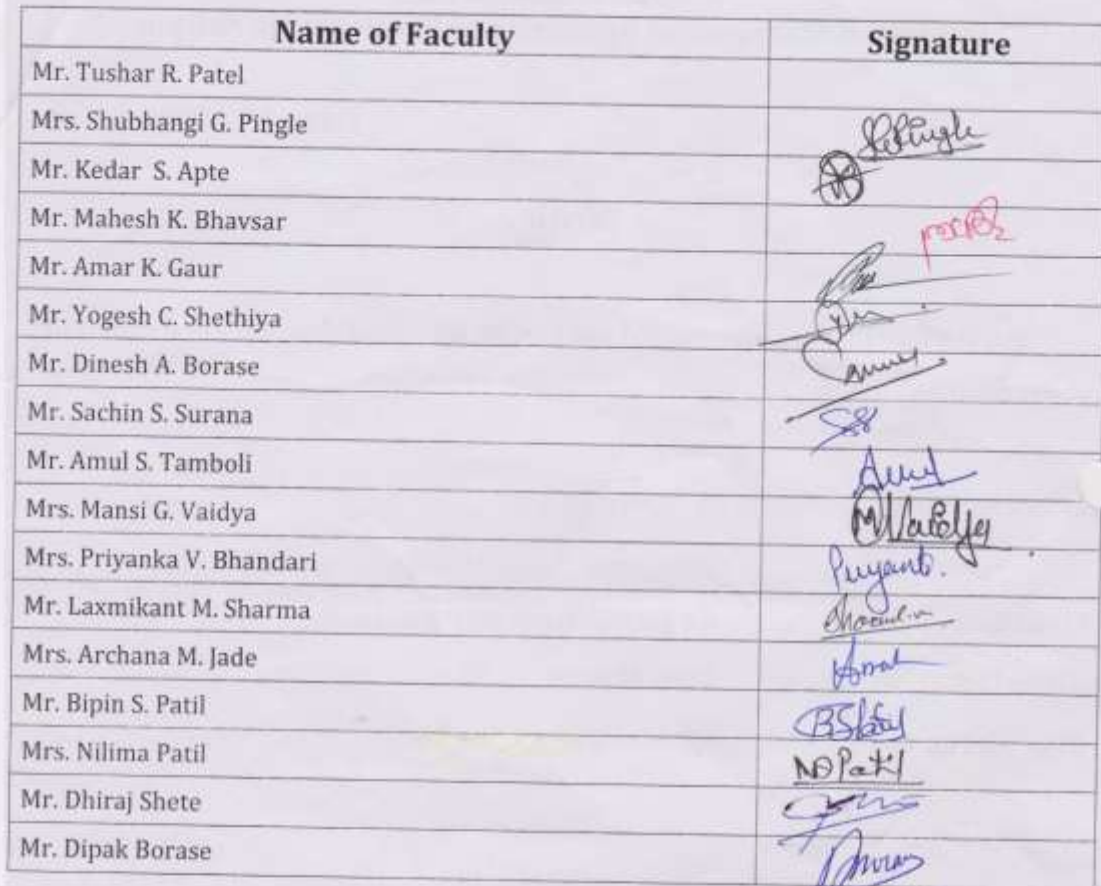 Name of Faculty Signature
Mr. Tushar R. Patel
Mrs. Shubhangi G. Pingle
Mr. Kedar S. Apte
Mr. Mahesh K. Bhavsar
Mr. Amar K. Gaur
Mr. Yogesh C. Shethiya
Mr. Dinesh A. Borase
Mr. Sachin S. Surana
Mr. Amul S. Tamboli Amul
Mrs. Mansi G. Vaidya M Vaidya
Mrs. Priyanka V. Bhandari
Mr. Laxmikant M. Sharma
Mrs. Archana M. Jade
Mr. Bipin S. Patil BSPatil
Mrs. Nilima Patil NDPatil
Mr. Dhiraj Shete
Mr. Dipak Borase